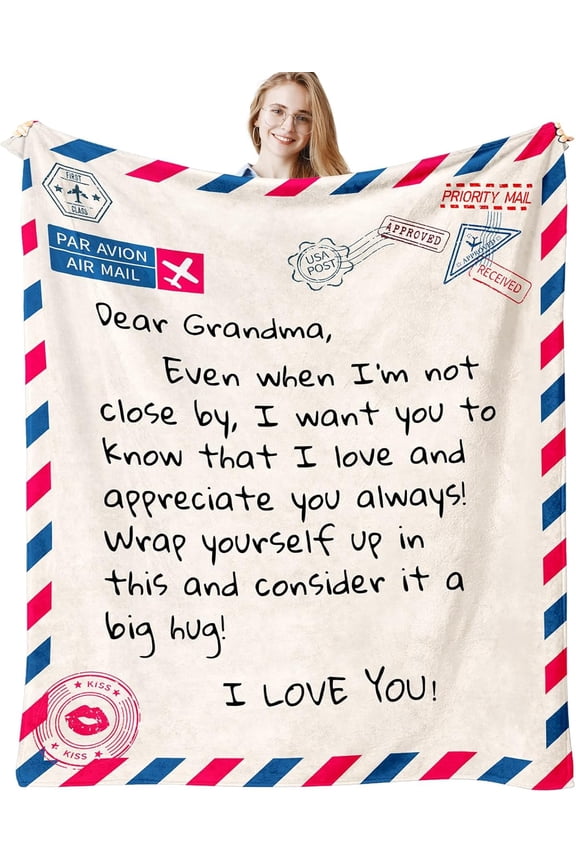 FIRST
CLASS
PRIORITY MAIL
PAR AVION
AIR MAIL
USA
POST
APPROVED
APPROVED
RECEIVED
Dear Grandma,
Even when I'm not
close by, I want you to
know that I love and
appreciate you always!
Wrap yourself up in
this and consider it a
big hug!
I LOVE YOU!
KISS
KISS